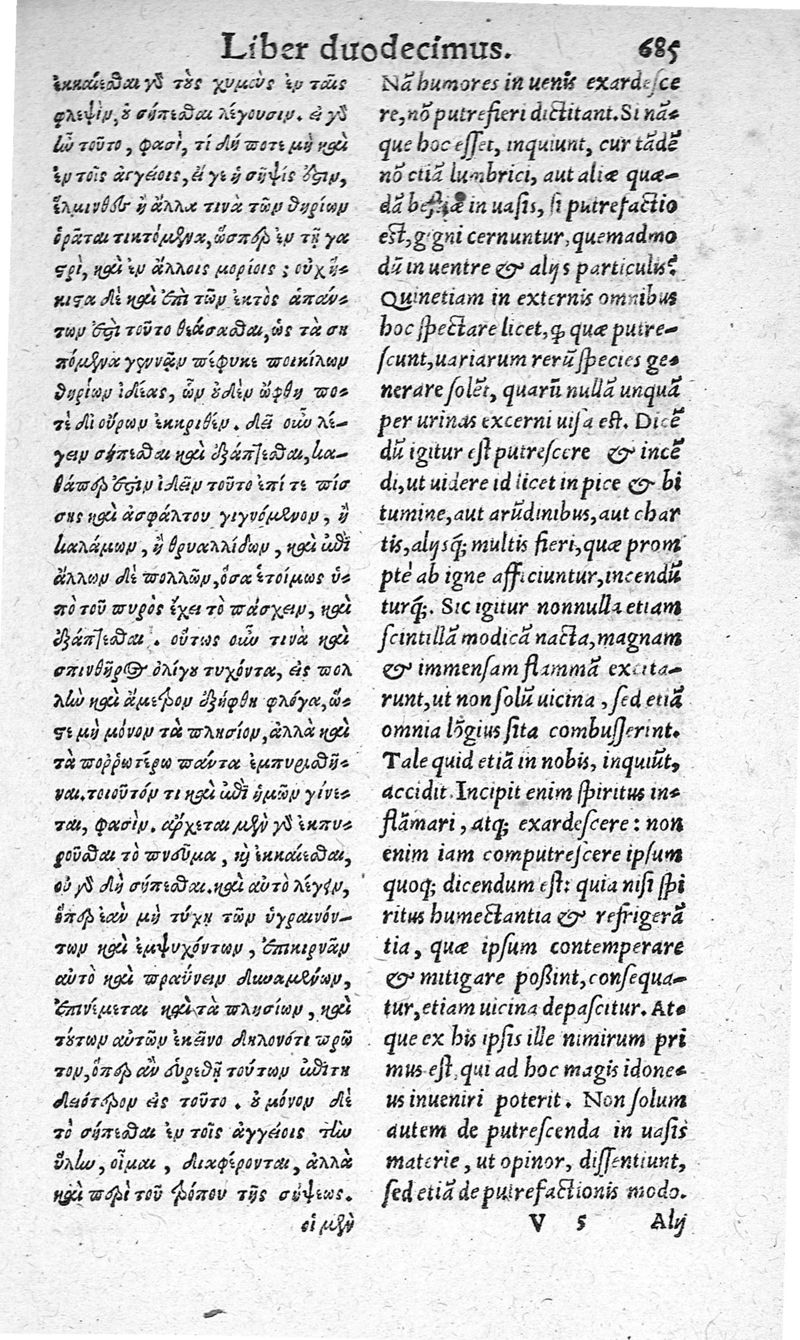 Liber duodecimus. 685
ἐκκαίεσθαι γδ τοὺς χυμοὺς ἐν ταῖς
φλεψὶν, οὐ σήπεσθαι λέγουσιν. εἰ γδ
ἦν τοῦτο, φασὶ, τί δή ποτε μὴ καὶ
ἐν τοῖς ἀγγείοις, εἴ γε ἡ σῆψίς ἐστιν,
ἕλμινθος ἢ ἄλλα τινὰ τῶν θηρίων
ὁρᾶται τικτόμενα, ὥσπερ ἐν τῇ γα
στρὶ, καὶ ἐν ἄλλοις μορίοις; οὐχ ἥ-
κιστα δὲ καὶ ἐπὶ τῶν ἐκτὸς ἁπάν-
των ἐστὶ τοῦτο θεάσασθαι, ὡς τὰ ση
πόμενα γεννᾷν πέφυκε ποικίλων
θηρίων ἰδέας, ὧν οὐδὲν ὤφθη πο-
τὲ δι οὔρων ἐκκριθέν. δεῖ οὖν λέ-
γειν σήπεσθαι καὶ ἐξάπτεσθαι, κα-
θάπερ ἐστὶν ἰδεῖν τοῦτο ἐπί τε πίσ
σης καὶ ἀσφάλτου γιγνόμενον, ἢ
καλάμων, ἢ θρυαλλίδων, καὶ ἐπὶ
ἄλλων δὲ πολλῶν, ὅσα ἑτοίμως ὑ-
πὸ τοῦ πυρὸς ἔχει τὸ πάσχειν, καὶ
ἐξάπτεσθαι. οὕτως οὖν τινὰ καὶ
σπινθῆρος ὀλίγου τυχόντα, εἰς πολ
λὴν καὶ ἄμετρον ἐξήφθη φλόγα, ὥ-
στε μὴ μόνον τὰ πλησίον, ἀλλὰ καὶ
τὰ πορρωτέρω πάντα ἐμπυρισθῆ-
ναι. τοιοῦτόν τι καὶ ἐπὶ ἡμῶν γίνε-
ται, φασὶν. ἄρχεται μὲν γδ ἐκπυ-
ροῦσθαι τὸ πνεῦμα, καὶ ἐκκαίεσθαι,
οὐ γδ δὴ σήπεσθαι καὶ αὐτὸ λέγειν,
ὅπερ ἐὰν μὴ τύχῃ τῶν ὑγραινόν-
των καὶ ἐμψυχόντων, ἐπικιρνᾷν
αὐτὸ καὶ πραΰνειν δυναμένων,
ἐπινέμεται καὶ τὰ πλησίων, καὶ
τούτων αὐτῶν ἐκεῖνο δηλονότι πρῶ
τον, ὅπερ ἂν εὑρεθῇ τούτων ἐπιτη
δειότερον εἰς τοῦτο. οὐ μόνον δὲ
τὸ σήπεσθαι ἐν τοῖς ἀγγείοις τὴν
ὕλην, οἶμαι, διαφέρονται, ἀλλὰ
καὶ περὶ τοῦ τρόπου τῆς σήψεως.
οἱ μὲν
Nā humores in uenis exardesce
re, nō putrefieri dictitant. Si nā-
que hoc esset, inquiunt, cur tādē
nō etiā lumbrici, aut aliæ quæ-
dā bestiæ in uasis, si putrefactio
est, gigni cernuntur, quemadmo
dū in uentre & alijs particulis?
Quinetiam in externis omnibus
hoc spectare licet, ꝙ quæ putre-
scunt, uariarum rerū species ge-
nerare solēt, quarū nullā unquā
per urinas excerni uisa est. Dicē
dū igitur est putrescere & incē
di, ut uidere id licet in pice & bi
tumine, aut arūdinibus, aut char
tis, alijsq; multis fieri, quæ prom
ptè ab igne afficiuntur, incendū
turq;. Sic igitur nonnulla etiam
scintillā modicā nacta, magnam
& immensam flammā excita-
runt, ut non solū uicina, sed etiā
omnia lōgius sita combusserint.
Tale quid etiā in nobis, inquiūt,
accidit. Incipit enim spiritus in-
flāmari, atq; exardescere: non
enim iam computrescere ipsum
quoq; dicendum est: quia nisi spi
ritus humectantia & refrigerā
tia, quæ ipsum contemperare
& mitigare possint, consequa-
tur, etiam uicina depascitur. At-
que ex his ipsis ille nimirum pri
mus est, qui ad hoc magis idone-
us inueniri poterit. Non solum
autem de putrescenda in uasis
materie, ut opinor, dissentiunt,
sed etiā de putrefactionis modo.
V 5 Alij